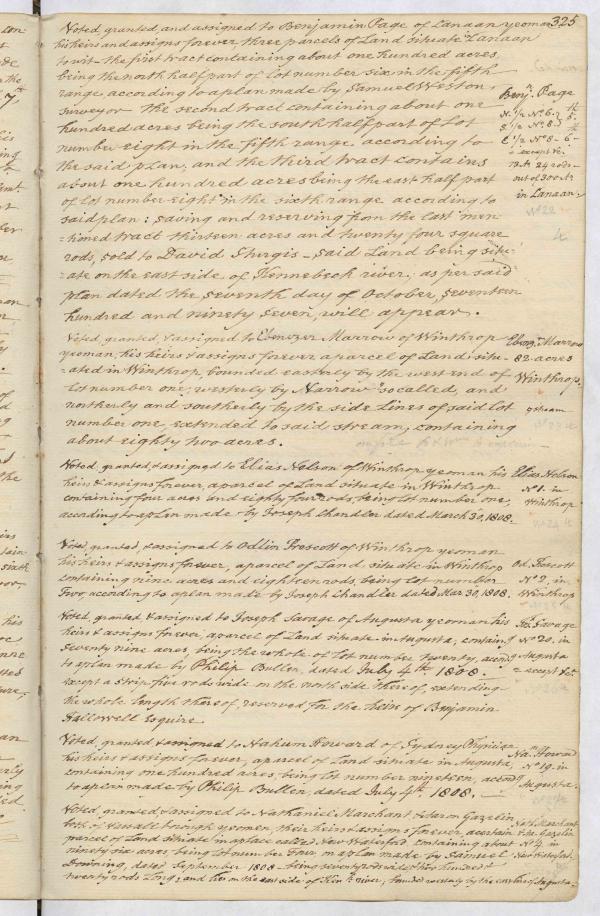 325
Voted, granted, and assigned to Benjamin Page of Canaan yeoman
his heirs and assigns forever three parcels of Land situate Canaan
to wit the first tract containing about one hundred acres,
being the north half part of lot number six in the fifth
range according to a plan made by Samuel Weston,
surveyor the second tract containing about one
hundred acres being the south half part of Lot
number eight in the fifth range according to
the said plan; and the third tract contains
about one hundred acres being the east half part
of Lot number eight in the sixth range according to
said plan: saving and reserving from the last men-
-tioned tract thirteen acres and twenty four square
rods, sold to David Sturgis - said Land being situ-
-ate on the east side of Kennebeck river; as per said
plan dated the seventh day of October, seventeen
hundred and ninety seven, will appear.
Benj. Page
N. 1/2 No 6.
S. 1/2 No 8.
E 1/2 No 8 - 6
except
13 A. 24 rods
out of 300 A.
in Canaan.
Voted, granted, & assigned to Ebenezer Marrow of Winthrop
yeoman, his heirs & assigns forever a parcel of Land situ-
-ated in Winthrop, bounded easterly by the west end of
Lot number one; westerly by Narrow so called, and
northerly and southerly by the side lines of said lot
number one, extended to said stream, containing
about eighty two acres.
Eben. Marrow
82 acres
Winthrop.
stream
Voted, granted, & assigned to Elias Nelson of Winthrop yeoman his
heirs & assigns forever, a parcel of Land situate in Winthrop
containing four acres and eighty four rods, being lot number one,
according to a plan made by Joseph Chandler dated March 30, 1808.
Elias Nelson
No 1. in
Winthrop
Voted, granted, & assigned to Odlin Prescott of Winthrop yeoman
his heirs & assigns forever, a parcel of Land situate in Winthrop
containing nine acres and eighteen rods, being lot number
Two, according to a plan made by Joseph Chandler dated Mar 30, 1808.
Od. Prescott
No 2, in
Winthrop
Voted, granted & assigned to Joseph Savage of Augusta yeoman his
heirs & assigns forever, a parcel of Land situate in Augusta, containg
seventy nine acres, being the whole of lot number twenty, accordg
to a plan made by Philip Bullen, dated July 4th 1808.
except a strip five rods wide on the north side thereof, extending
the whole length thereof, reserved for the heirs of Benjamin
Hallowell Esquire
Jos. Savage
No 20. in
Augusta
except &c.
Voted, granted & assigned to Nahum Howard of Sydney Physician
his heirs & assigns forever, a parcel of Land situate in Augusta,
containing one hundred acres, being lot number nineteen, accordg
to a plan made by Philip Bullen, dated July 4th 1808.
Nam Howard
No 19. in
Augusta.
Voted, granted & assigned to Nathaniel Marchant & Aaron Gazelin
both of Vassalborough yeomen, their heirs & assigns forever, a certain
parcel of Land situate in a place called New Waterford, containing about
ninety six acres being lot number Four, on a plan made by Samuel
dated September 1808 being seventy rods wide & two hundred
twenty rods long; and lies on the east side of Ken. river, bounded westerly by the east line of Augusta.
Marchant
& Aa. Gazelin
No 4. in
New Waterford.